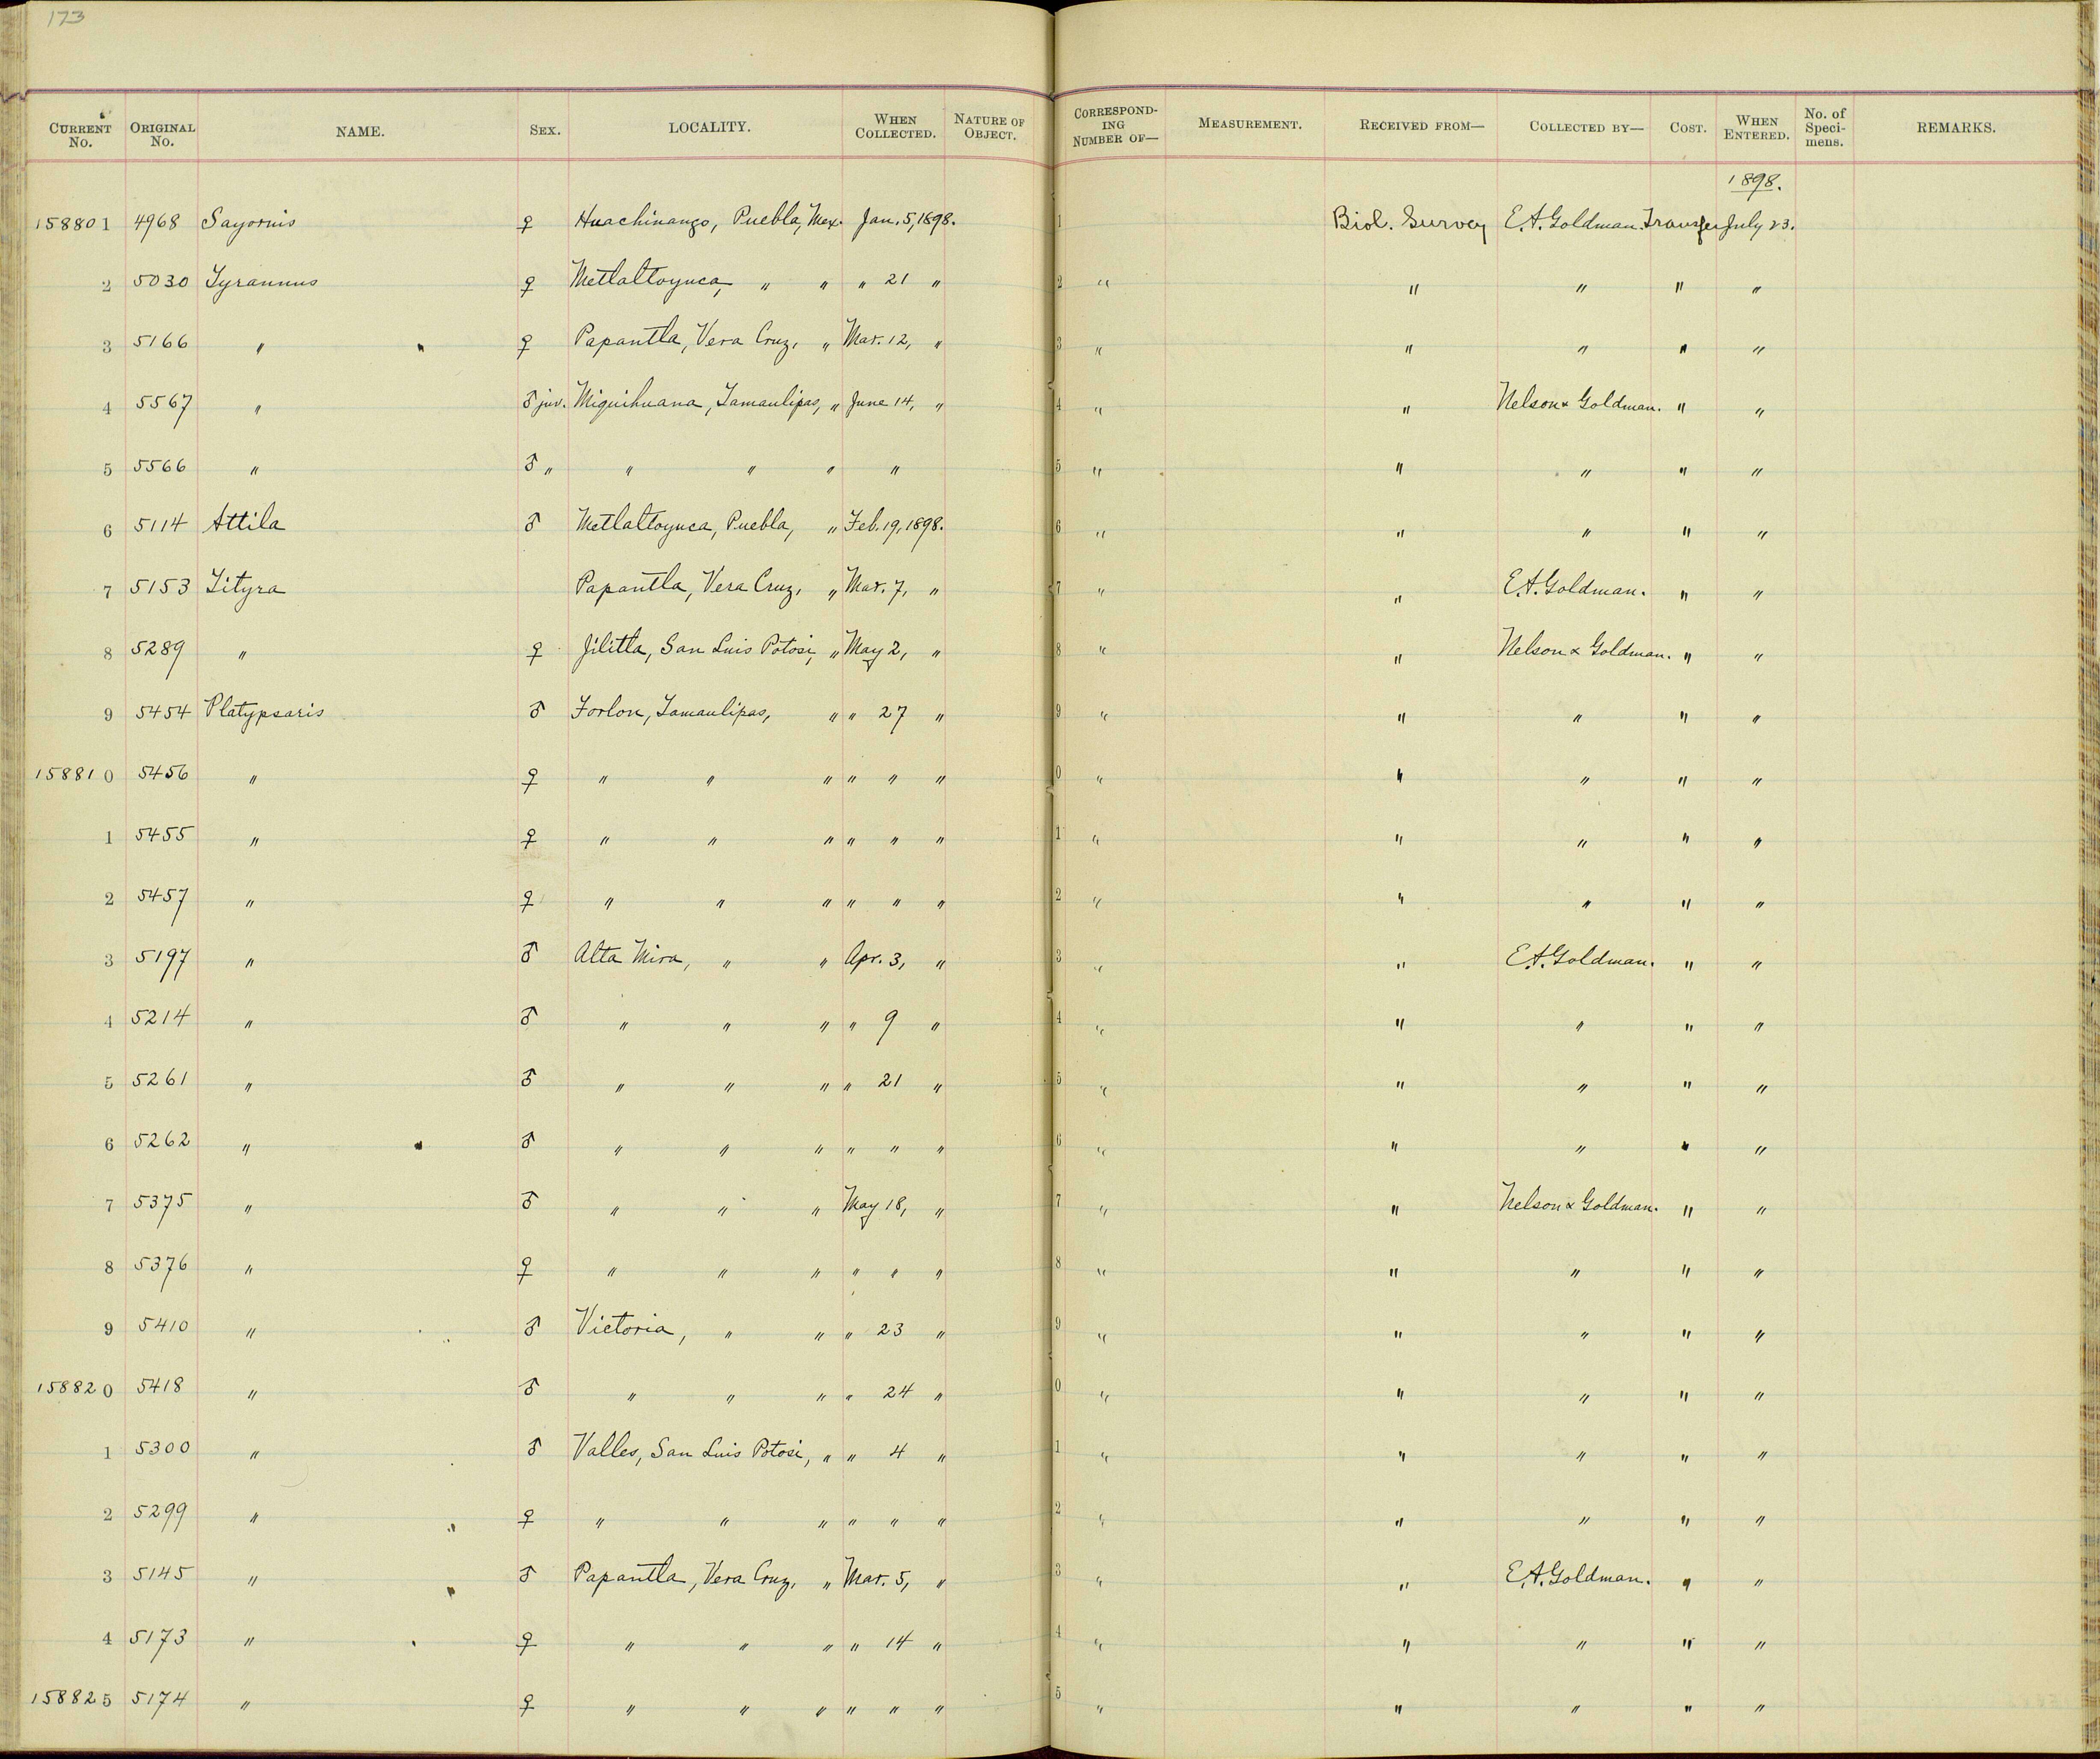 173
CURRENT No. ORIGINAL No. NAME. SEX. LOCALITY. WHEN COLLECTED. NATURE OF OBJECT. CORRESPONDING NUMBER OF— MEASUREMENT. RECEIVED FROM— COLLECTED BY— COST. WHEN ENTERED. No. of Specimens. REMARKS.
1898.
158801 4968 Sayornis ♀ Huachinango, Puebla, Mex. Jan. 5, 1898. 1 Biol. Survey E.A. Goldman. Transfer July 23.
2 5030 Tyrannus ♀ Metlaltoyuca, " " " 21 " 2 " " " " "
3 5166 " ♀ Papantla, Vera Cruz, " Mar. 12, " 3 " " " " "
4 5567 " ♂ juv. Miquihuana, Tamaulipas, " June 14, " 4 " " Nelson & Goldman. " "
5 5566 " ♂ " " " " " 5 " " " " "
6 5114 Attila ♂ Metlaltoyuca, Puebla, " Feb. 19, 1898. 6 " " " " "
7 5153 Tityra Papantla, Vera Cruz, " Mar. 7, " 7 " " E.A. Goldman. " "
8 5289 " ♀ Jilitla, San Luis Potosi, " May 2, " 8 " " Nelson & Goldman. " "
9 5454 Platypsaris ♂ Forlon, Tamaulipas, " " 27 " 9 " " " " "
158810 5456 " ♀ " " " " " " 0 " " " " "
1 5455 " ♀ " " " " " " 1 " " " " "
2 5457 " ♀ " " " " " " 2 " " " " "
3 5197 " ♂ Alta Mira, " " Apr. 3, " 3 " " E.A. Goldman. " "
4 5214 " ♂ " " " " 9 " 4 " " " " "
5 5261 " ♂ " " " " 21 " 5 " " " " "
6 5262 " ♂ " " " " " " 6 " " " " "
7 5375 " ♂ " " " May 18, " 7 " " Nelson & Goldman. " "
8 5376 " ♀ " " " " " " 8 " " " " "
9 5410 " ♂ Victoria, " " " 23 " 9 " " " " "
158820 5418 " ♂ " " " " 24 " 0 " " " " "
1 5300 " ♂ Valles, San Luis Potosi, " " 4 " 1 " " " " "
2 5299 " ♀ " " " " " " 2 " " " " "
3 5145 " ♂ Papantla, Vera Cruz, " Mar. 5, " 3 " " E.A. Goldman. " "
4 5173 " ♀ " " " " 14 " 4 " " " " "
158825 5174 " ♀ " " " " " " 5 " " " " "